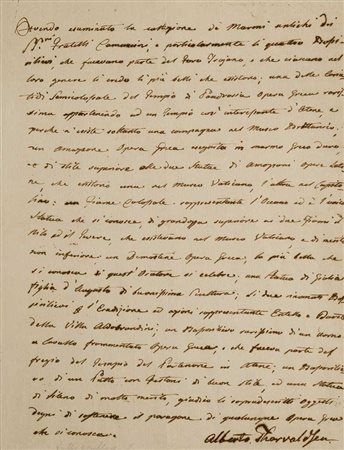 Avendo esaminato la collezione di Marmi antichi di
Fratelli Camuccini, e particolarmente li quattro Bassi-
rilievi che facevano parte del Foro Trajano, e che ciascuno nel
loro genere li credo li più belli che esistono; una delle
di Semicolossale del Tempio di Pandrosia Opera Greca raris-
sima appartenendo ad un Tempio così interessante d'Atene e
perche n'esiste soltanto una compagna nel Museo Brittanico:
un Amazzone Opera Greca eseguita in marmo Greco duro
et di stile superiore alle due Statue di Amazzoni opere
ne, che esistono una nel Museo Vaticano, l'altra nel Capito-
lino: un Fiume Colossale rappresentante l'Oceano ed è l'unica
Statua che si conosca di grandezza superiore ai due Fiumi il
Nilo ed il Tevere, che esistevano nel Museo Vaticano, e di merito
non inferiore: un Demostene Opera Greca, la più bella che
si conosca di quest'Oratore si celebre, una Statua di Giulia
figlia d'Augusto di buonissima Scultura, li due rinomati Bas-
silievi l'Eradizione ed aprirsi rappresentante
della Villa Aldobrandini; un Bassorilievo rarissimo d'un Uomo
a Cavallo frammentato Opera Greca, che faceva parte del
fregio del Tempio del Partenone in Atene; un Bassorilie-
vo di un Putto con Festoni di buon stile, ed una Statua
di Sileno di molto merito, giudico li sopraddescritti Oggetti
degni di sostenere il paragone di qualunque Opera Greca
che si conosca.
Alberto Thorvaldsen